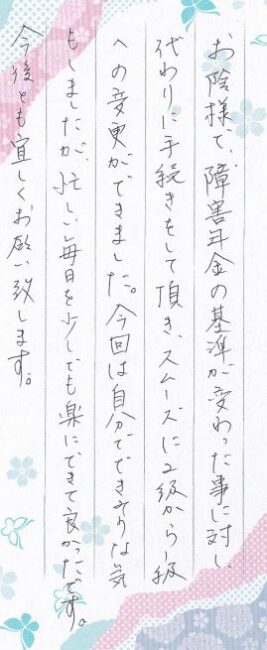 お陰様で、障害年金の基準が変わった事に対し、
代わりに手続きをして頂き、スムーズに2級から1級
への変更ができました。今回は自分でできそうな気
もしましたが、忙しい毎日を少しでも楽にできて良かったです。
今後とも宜しくお願い致します。